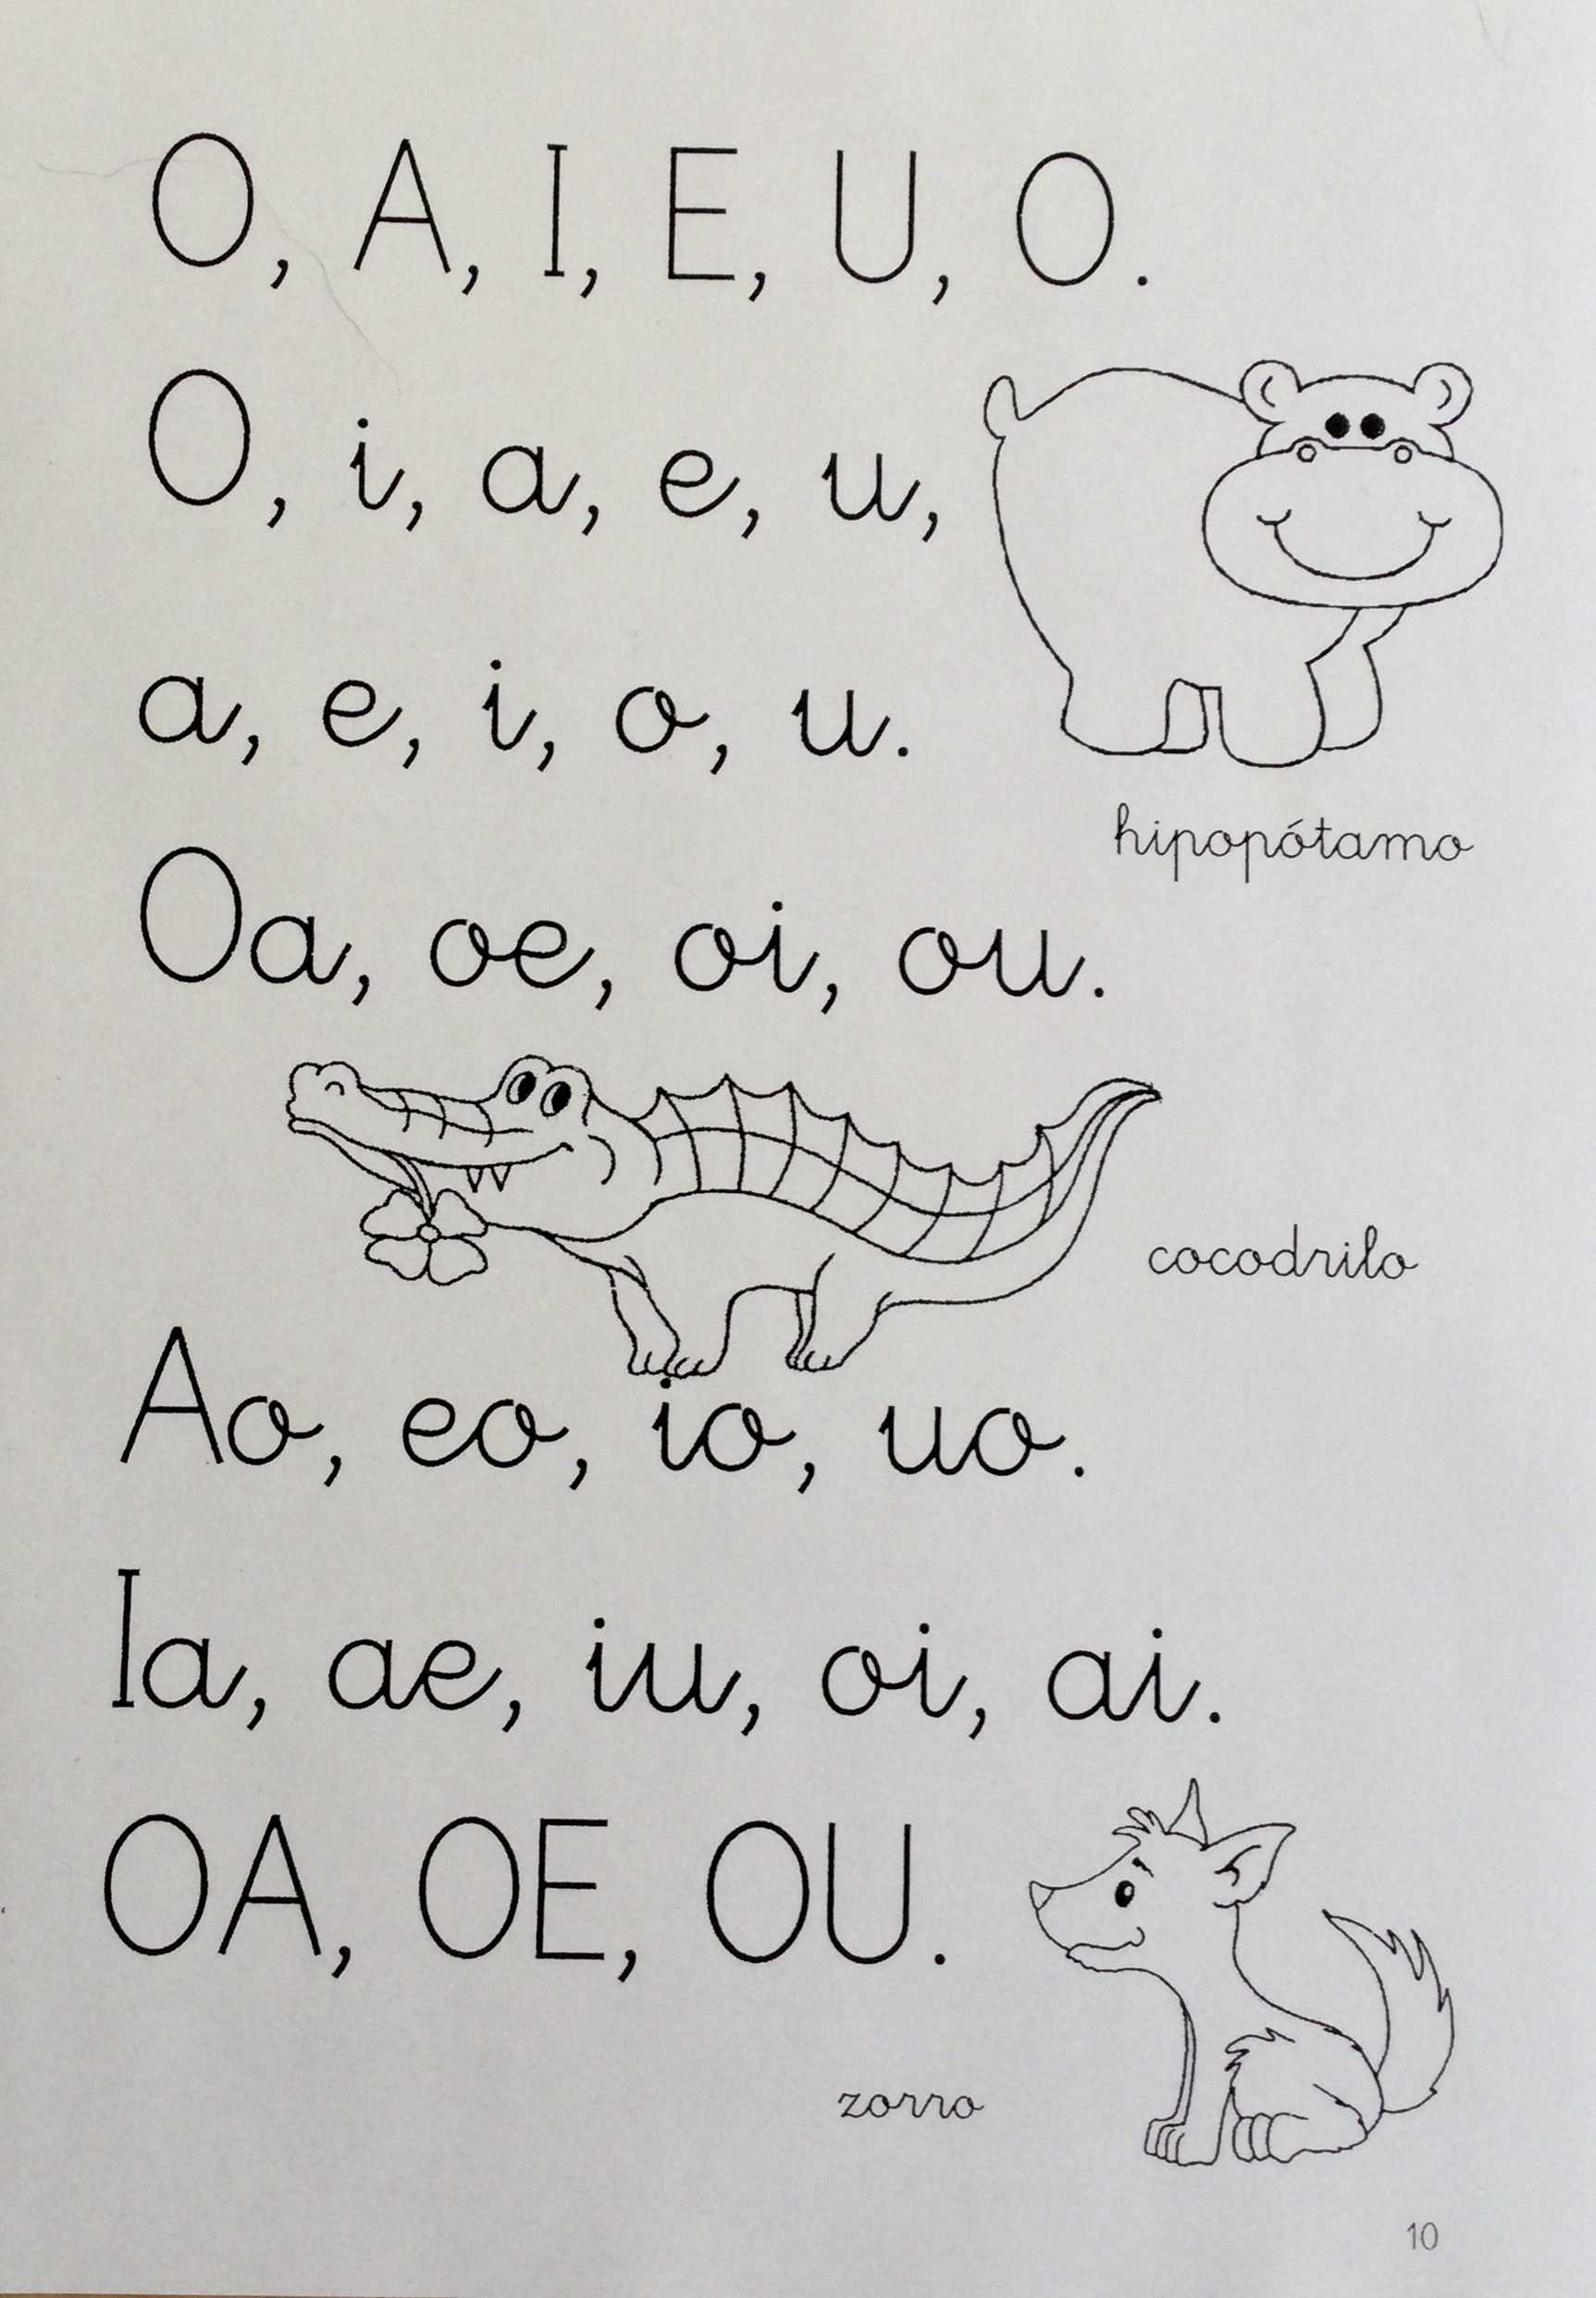 O, A, I, E, U, O.
O, i, a, e, u,
a, e, i, o, u.
hipopótamo
Oa, oe, oi, ou.
cocodrilo
Ao, eo, io, uo.
Ia, ae, iu, oi, ai.
OA, OE, OU.
zorro
10